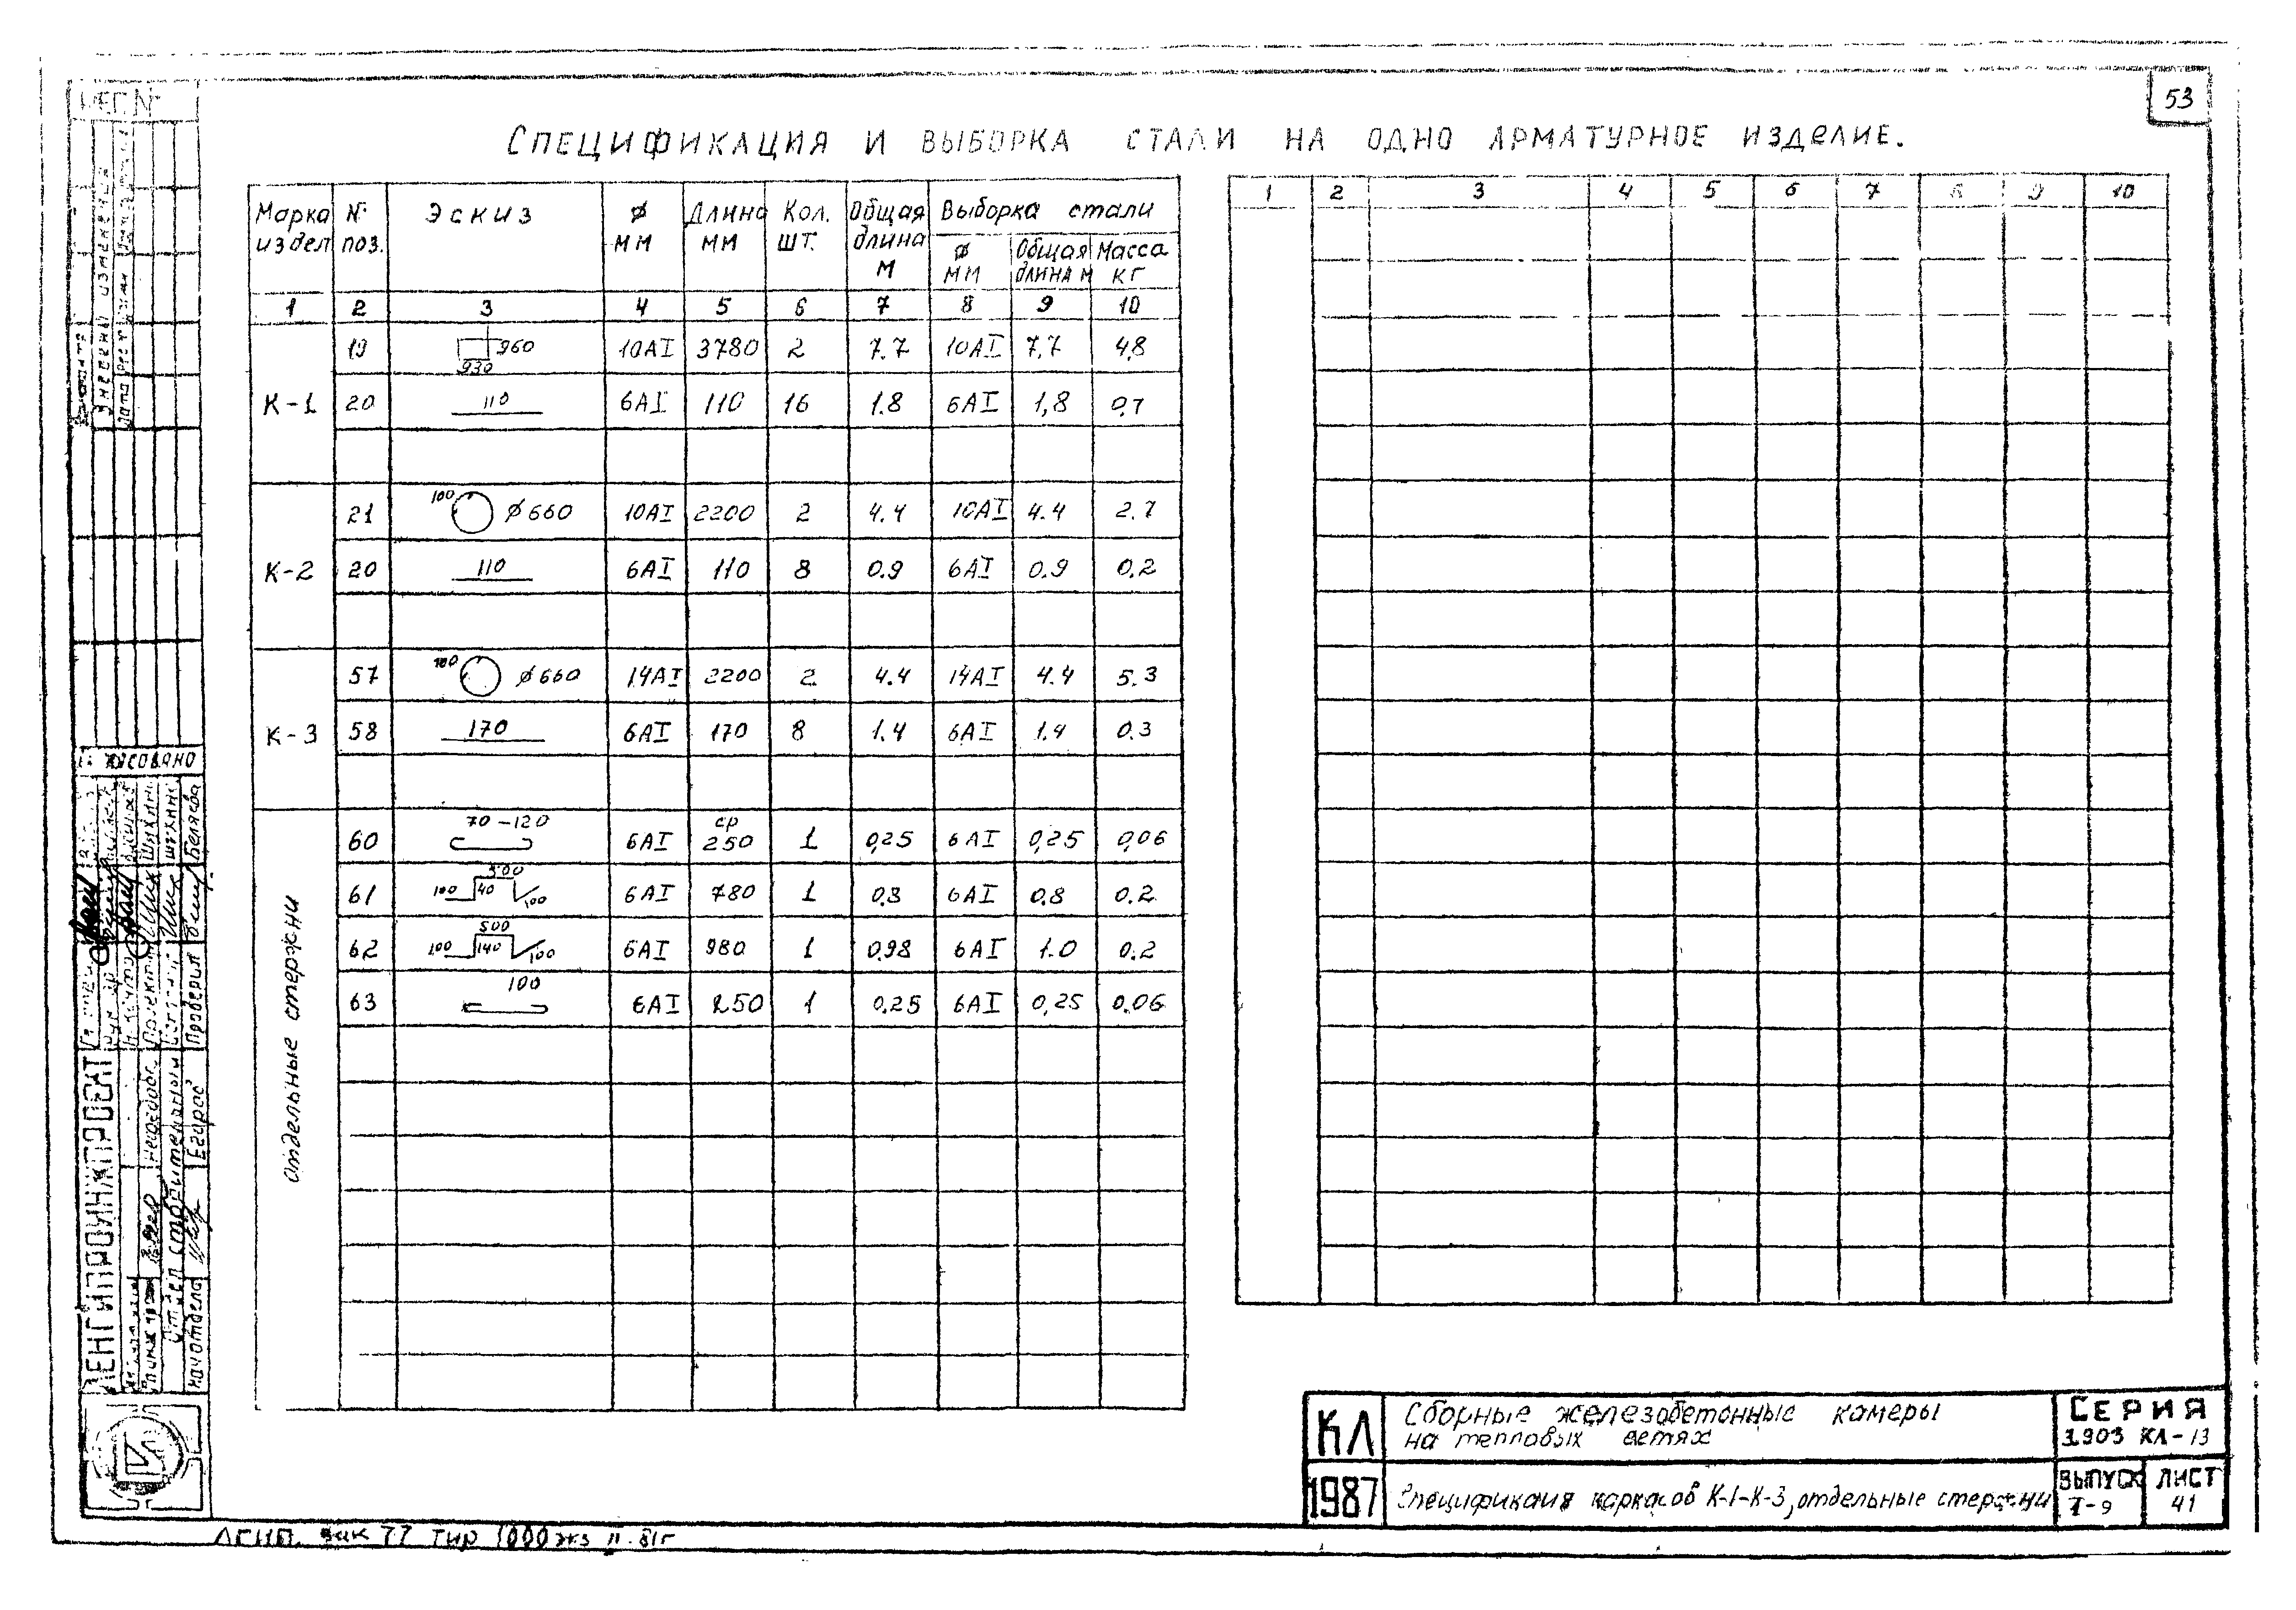 53
СПЕЦИФИКАЦИЯ И ВЫБОРКА СТАЛИ НА ОДНО АРМАТУРНОЕ ИЗДЕЛИЕ.
Марка издел | № поз. | Эскиз | Ø мм | Длина мм | Кол. шт. | Общая длина м | Выборка стали
Ø мм | Общая длина м | Масса кг
1 2 3 4 5 6 7 8 9 10
К-1
19 960 930 10АI 3780 2 7.7 10АI 7,7 4,8
20 110 6АI 110 16 1.8 6АI 1,8 0,7
К-2
21 100 Ø660 10АI 2200 2 4.4 10АI 4.4 2.7
20 110 6АI 110 8 0.9 6АI 0.9 0.2
К-3
57 100 Ø660 14АI 2200 2 4.4 14АI 4.4 5.3
58 170 6АI 170 8 1.4 6АI 1.4 0.3
отдельные стержни
60 70-120 6АI ср 250 1 0,25 6АI 0,25 0,06
61 100 300 40 100 6АI 780 1 0.8 6АI 0.8 0.2
62 100 500 140 100 6АI 980 1 0.98 6АI 1.0 0.2
63 100 6АI 250 1 0.25 6АI 0,25 0.06
1 2 3 4 5 6 7 8 9 10
КЛ
Сборные железобетонные камеры
на тепловых сетях
СЕРИЯ
1903 КЛ-13
1987
Спецификация каркасов К-1-К-3, отдельные стержни
ВЫПУСК
I-9
ЛИСТ
41
ЛГИП. Зак 77 Тир 1000 экз II.81г
Внесены изменения
ЛЕНГИПРОИНЖПРОЕКТ
Отдел строительный
Нач отдела
Егиров
Нефедов
Проверил
Беляева
Шихина